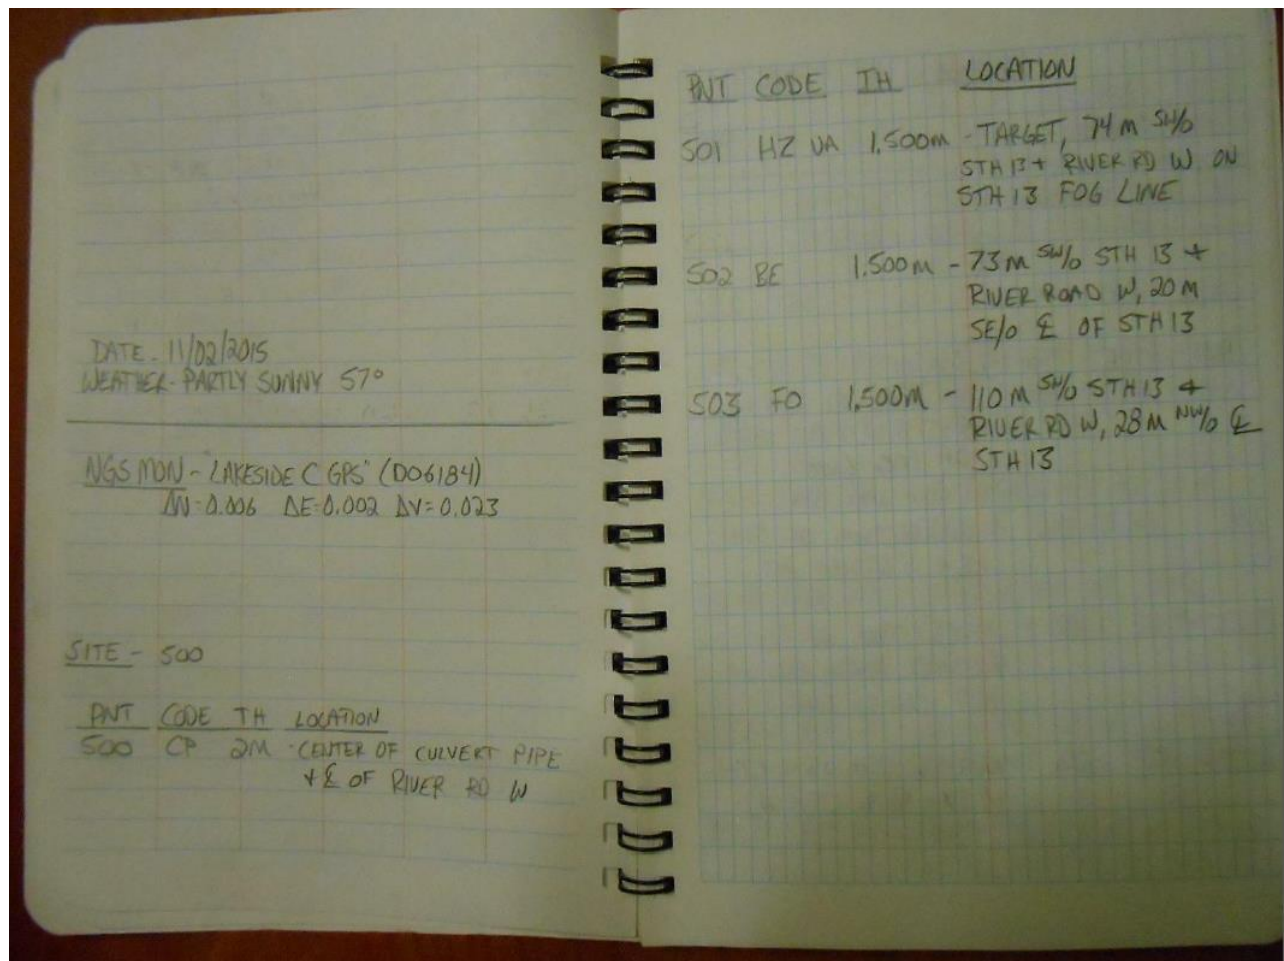 DATE - 11/02/2015
WEATHER - PARTLY SUNNY 57°
NGS MON - "LAKESIDE C GPS" (DO6184)
ΔN=0.006 ΔE=0.002 ΔV=0.023
SITE - 500
PNT CODE TH LOCATION
500 CP 2M - CENTER OF CULVERT PIPE
+ ℄ OF RIVER RD W
PNT CODE TH LOCATION
501 HZ VA 1.500m - TARGET, 74 M SW/o
STH 13 + RIVER RD W ON
STH 13 FOG LINE
502 BE 1.500m - 73 M SW/o STH 13 +
RIVER ROAD W, 20 M
SE/o ℄ OF STH 13
503 FO 1.500M - 110 M SW/o STH 13 +
RIVER RD W, 28 M NW/o ℄
STH 13